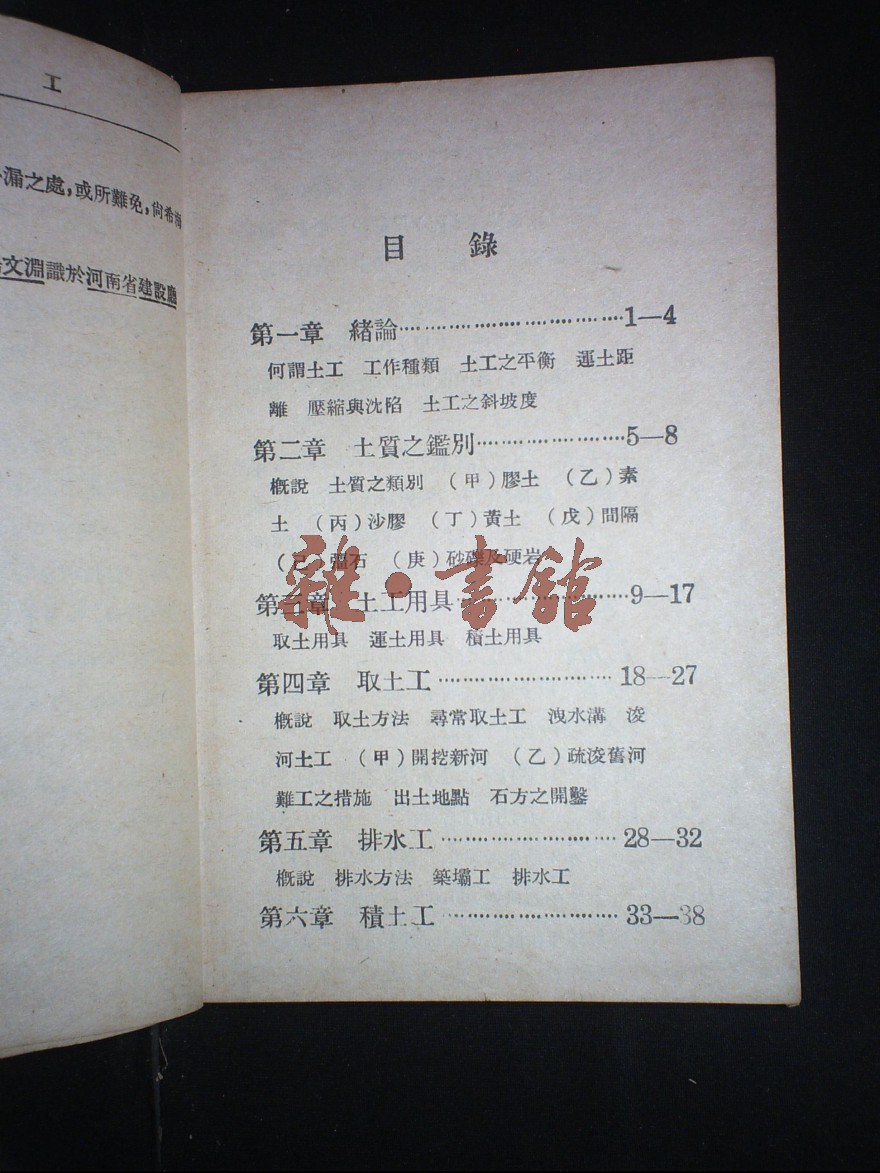 工
漏之處,或所難免,尙希海
文淵識於河南省建設廳
目錄
第一章 緒論……………………………1—4
何謂土工 工作種類 土工之平衡 運土距
離 壓縮與沈陷 土工之斜坡度
第二章 土質之鑑別……………………5—8
槪說 土質之類別 (甲)膠土 (乙)素
土 (丙)沙膠 (丁)黃土 (戊)間隔
(己)礓石 (庚)砂礫及硬岩
第三章 土工用具……………………9—17
取土用具 運土用具 積土用具
第四章 取土工……………………18—27
槪說 取土方法 尋常取土工 洩水溝 浚
河土工 (甲)開挖新河 (乙)疏浚舊河
難工之措施 出土地點 石方之開鑿
第五章 排水工……………………28—32
槪說 排水方法 築壩工 排水工
第六章 積土工……………………33—38
雜·書舘